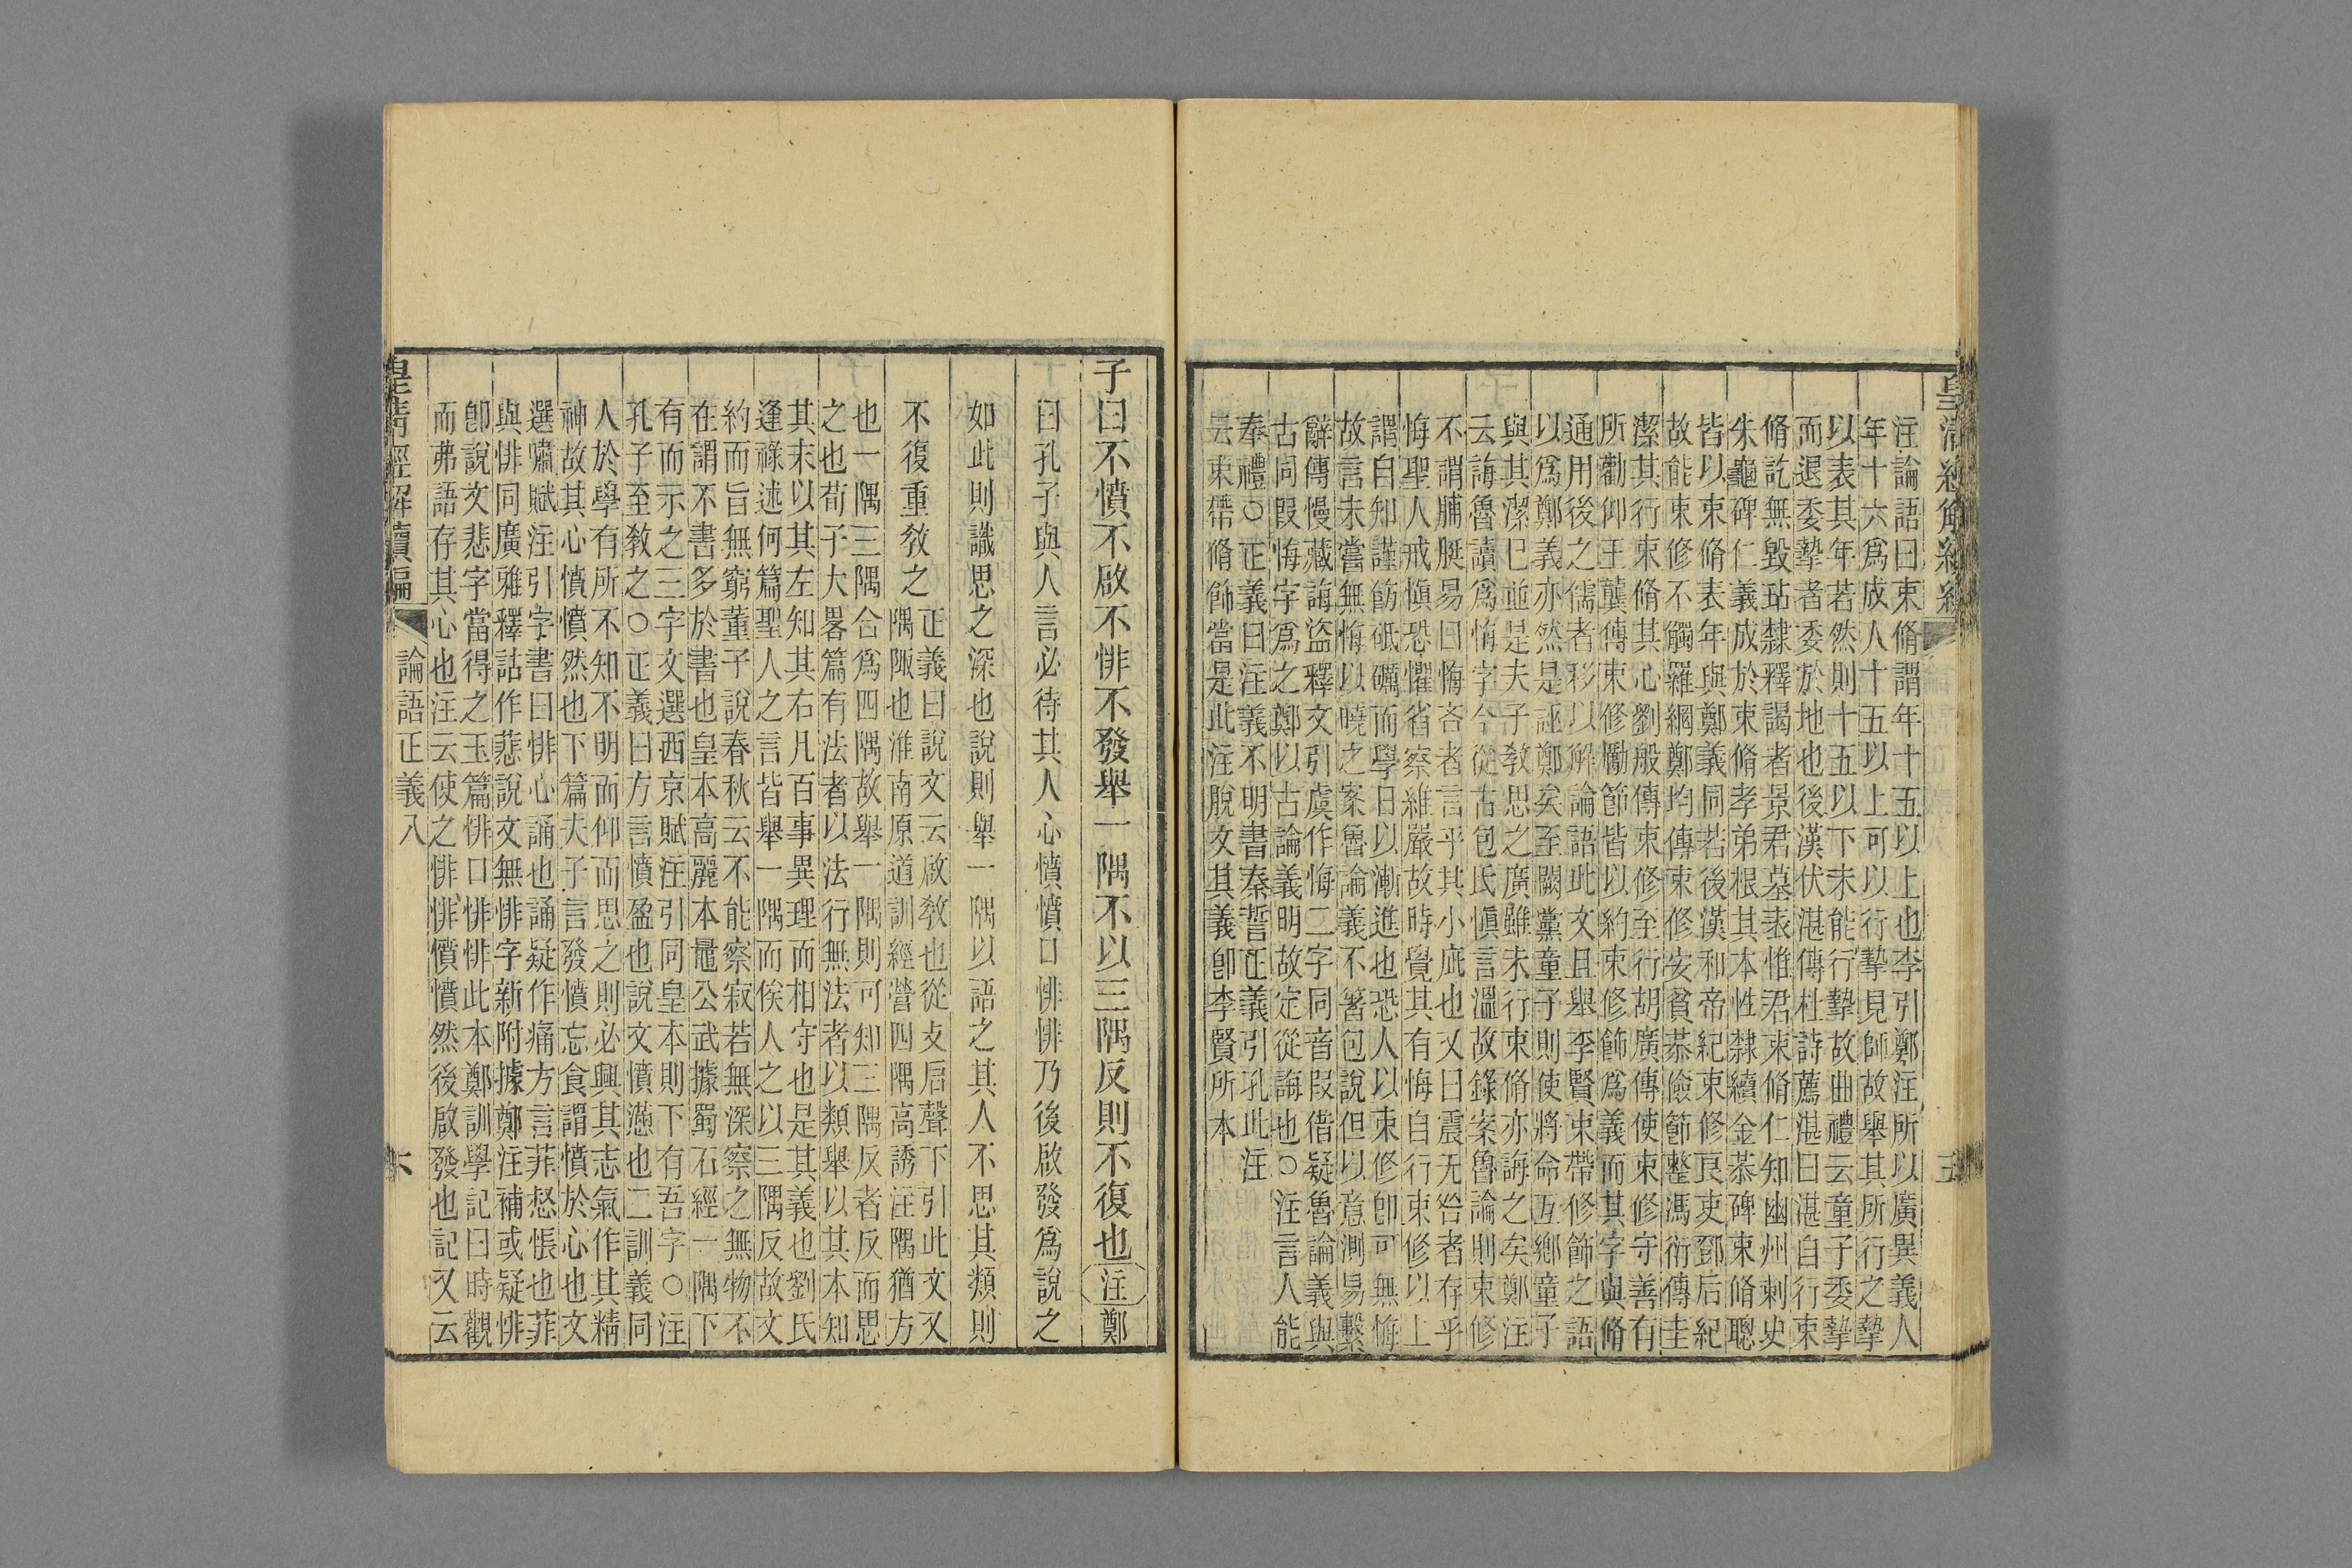 注論語曰束脩謂年十五以上也李引鄭注所以廣異義人
年十六爲成人十五以上可以行摯見師故舉其所行之摯
以表其年若然則十五以下未能行摯故曲禮云童子委摯
而退委摯者委於地也後漢伏湛傳杜詩薦湛曰湛自行束
脩訖無毀玷隸釋謁者景君墓表惟君束脩仁知幽州刺史
朱龜碑仁義成於束脩孝弟根其本性隸續金恭碑束脩聰
皆以束脩表年與鄭義同若後漢和帝紀束修良吏鄧后紀
故能束修不觸羅網鄭均傳束修安貧恭儉節整馮衍傳圭
潔其行束脩其心劉般傳束修至行胡廣傳使束修守善有
所勸仰王龔傳束修勵節皆以約束修飾爲義而其字與脩
通用後之儒者移以解論語此文且舉李賢束帶修飾之語
以爲鄭義亦然是誣鄭矣至闕黨童子則使將命互鄉童子
與其潔已並是夫子教思之廣雖未行束脩亦誨之矣鄭注
云誨魯讀爲悔字今從古包氏愼言溫故錄案魯論則束修
不謂脯脡易曰悔吝者言乎其小疵也又曰震无咎者存乎
悔聖人戒愼恐懼省察維嚴故時覺其有悔自行束修以上
謂自知謹飭砥礪而學日以漸進也恐人以束修卽可無悔
故言未嘗無悔以曉之案魯論義不箸包說但以意測易繫
辭傳慢藏誨盜釋文引虞作悔二字同音叚借疑魯論義與
古同叚悔字爲之鄭以古論義明故定從誨也○注言人能
奉禮○正義曰注義不明書秦誓正義引孔此注
云束帶脩飾當是此注脫文其義卽李賢所本
子曰不憤不啟不悱不發舉一隅不以三隅反則不復也注鄭
曰孔子與人言必待其人心憤憤口悱悱乃後啟發爲說之
如此則識思之深也說則舉一隅以語之其人不思其類則
不復重教之
正義曰說文云啟教也從攴启聲下引此文又
隅陬也淮南原道訓經營四隅高誘注隅猶方
也一隅三隅合爲四隅故舉一隅則可知三隅反者反而思
之也荀子大畧篇有法者以法行無法者以類舉以其本知
其末以其左知其右凡百事異理而相守也是其義也劉氏
逢祿述何篇聖人之言皆舉一隅而俟人之以三隅反故文
約而旨無窮董子說春秋云不能察寂若無深察之無物不
在謂不書多於書也皇本高麗本鼂公武據蜀石經一隅下
有而示之三字文選西京賦注引同皇本則下有吾字○注
孔子至教之○正義曰方言憤盈也說文憤懣也二訓義同
人於學有所不知不明而仰而思之則必興其志氣作其精
神故其心憤憤然也下篇夫子言發憤忘食謂憤於心也文
選嘯賦注引字書曰悱心誦也誦疑作痛方言菲惄悵也菲
與悱同廣雅釋詁作𢘃說文無悱字新附據鄭注補或疑悱
卽說文悲字當得之玉篇悱口悱悱此本鄭訓學記曰時觀
而弗語存其心也注云使之悱悱憤憤然後啟發也記又云
皇清經解續編
論語正義八
六